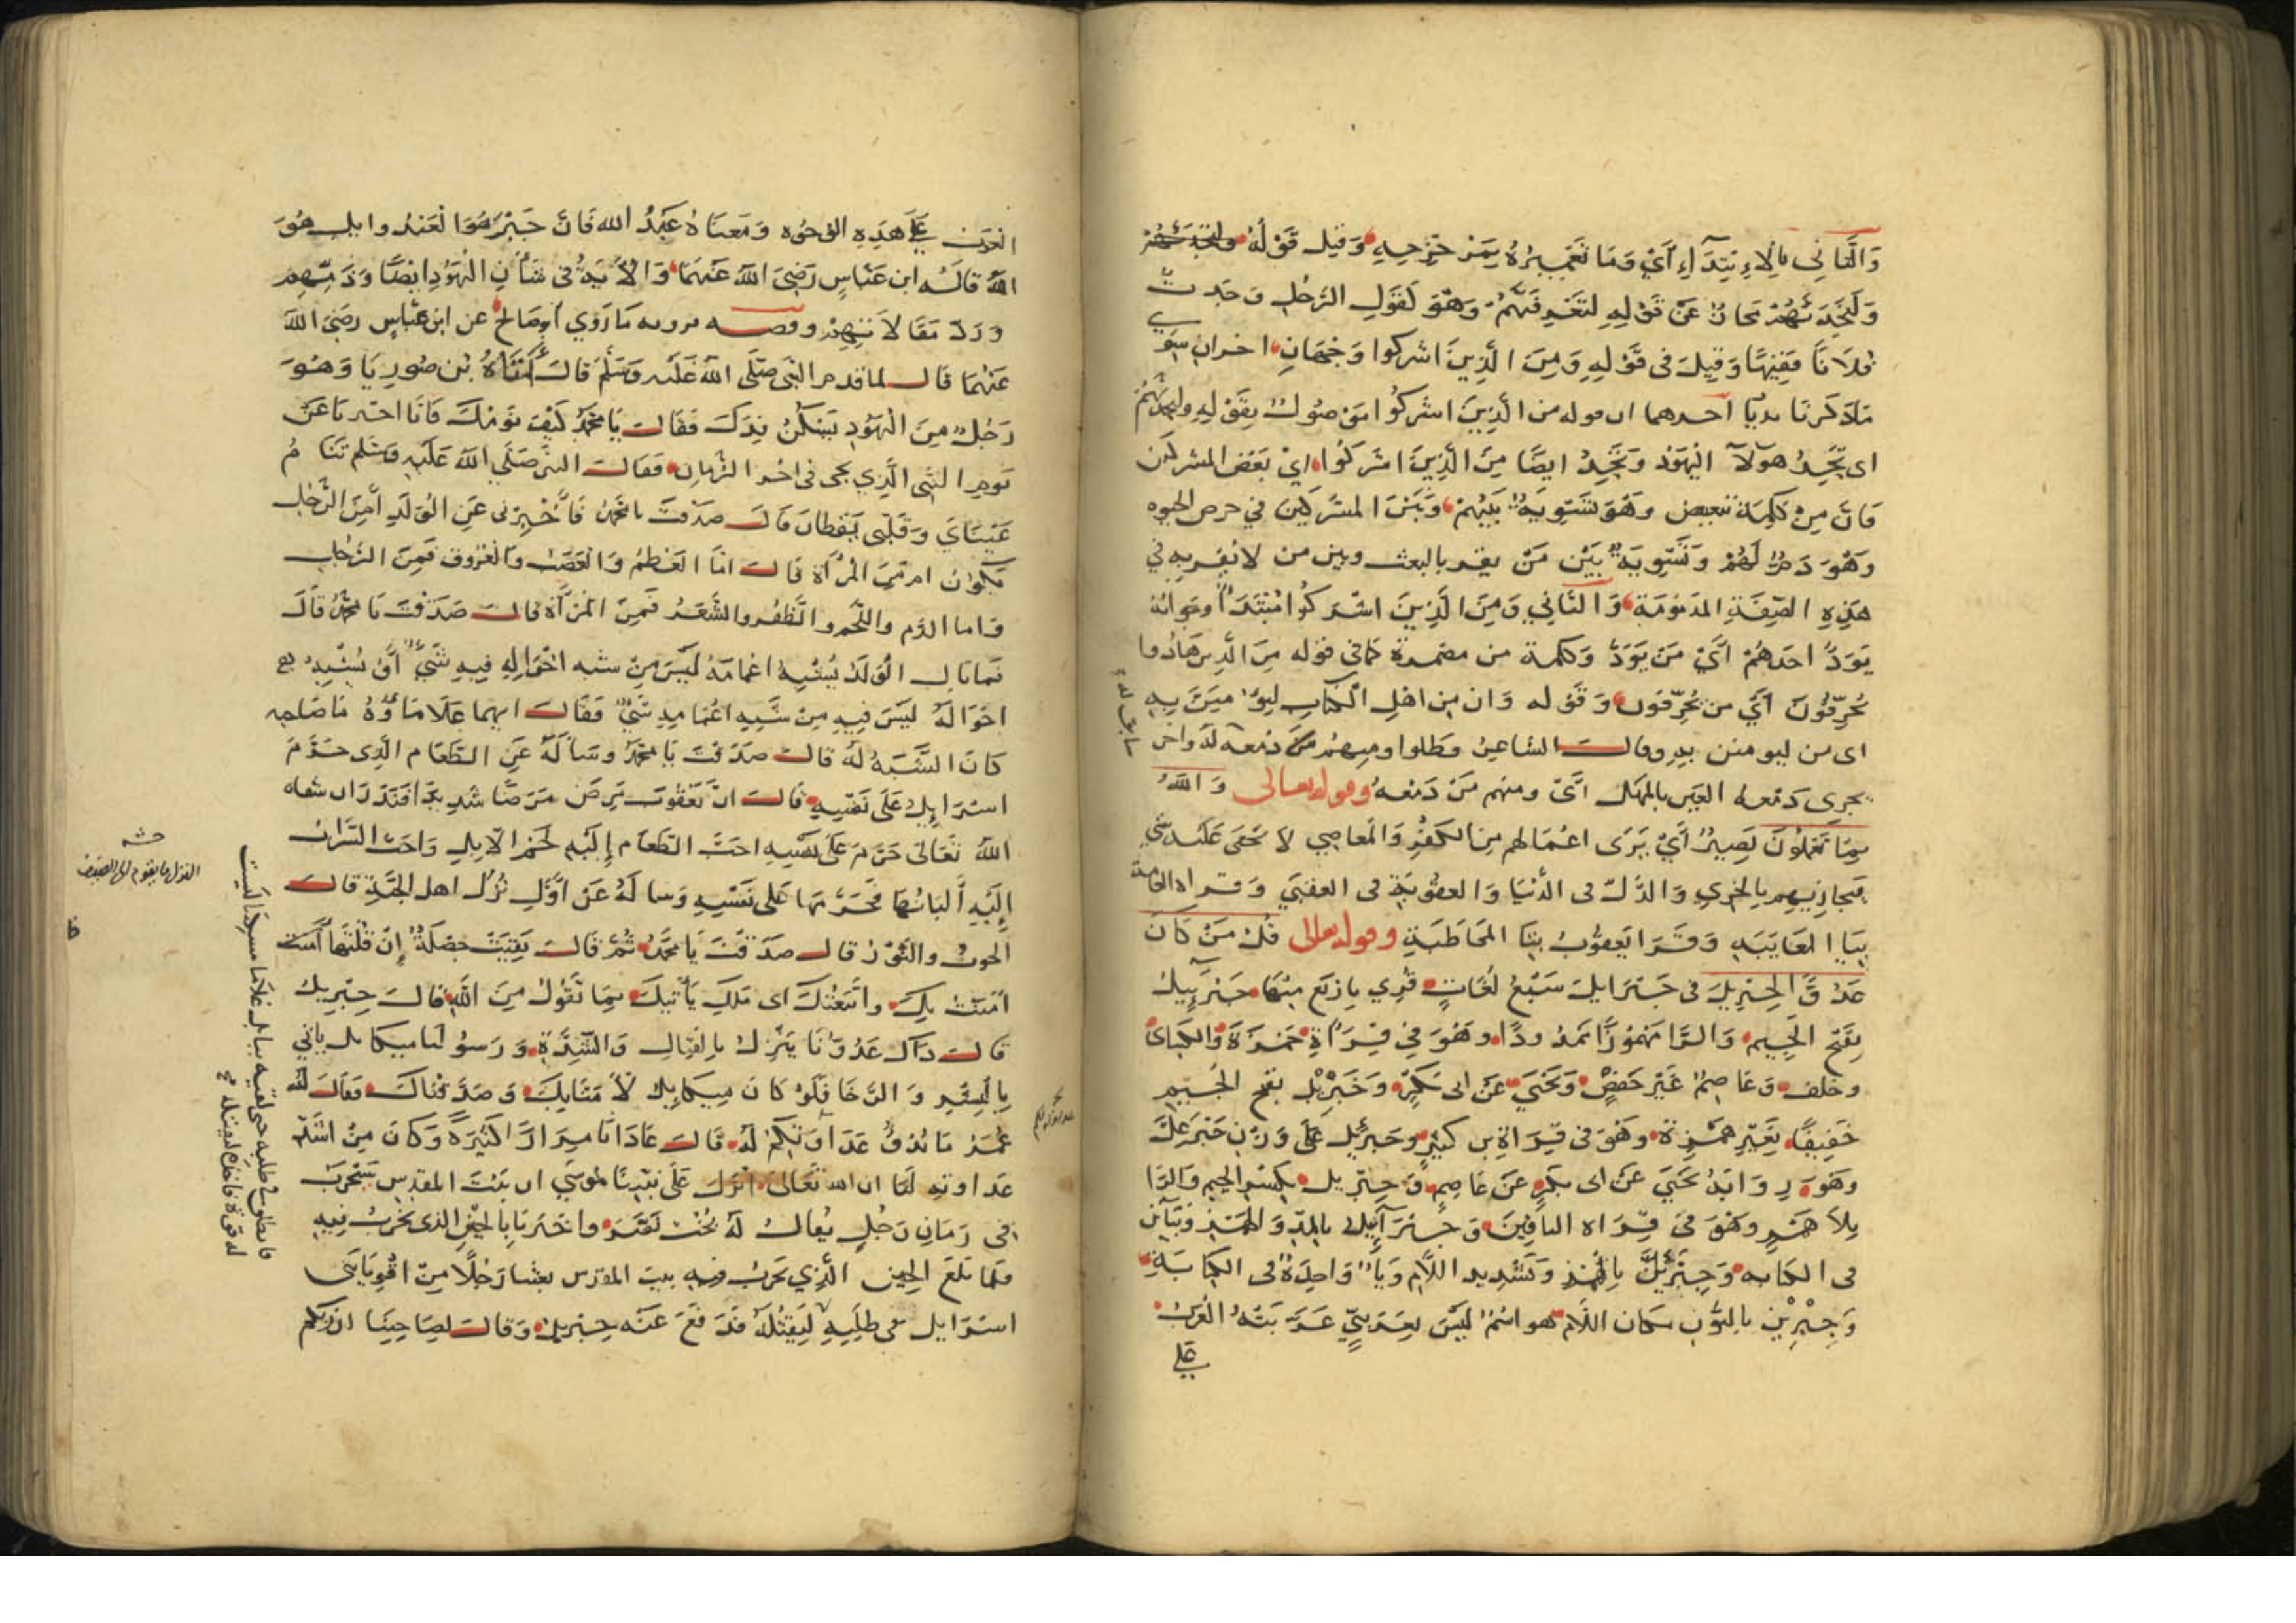 والثاني بالابتداء أي وما تعميره بمزحزحه وقيل قوله ولتجدنهم
ولتجدنهم مجاز عن قوله لتعرفنهم وهو كقول الرجل وجدت
فلانا فقيها وقيل في قوله ومن الذين اشركوا وجهان اخران سوى
ما ذكرنا احدهما ان قوله من الذين اشركوا موصول بقوله ولتجدنهم
اي تجد هولآ اليهود وتجد ايضا من الذين اشركوا اي بعض المشركين
فان من كلمة تبعيض وهو تسوية بينهم وبين المشركين في حرص الحيوه
وهو ذم لهم وتسوية بين من يقر بالبعث وبين من لا يقر به في
هذه الصفة المذمومة والثاني ومن الذين اشركوا مبتدأ وجوابه
يود احدهم اي من يود وكلمة من مضمرة كما في قوله من الذين هادوا
يحرفون اي من يحرفون وقوله وان من اهل الكتاب ليؤمنن به
اي من ليومنن به وقال الشاعر فظلوا ومنهم من دمعه له واخر
يجري دمعه العين بالمهل اي ومنهم من دمعه وقوله تعالى والله
بصير بما تعملون اي يرى اعمالهم من الكفر والمعاصي لا يخفى عليه شي
فيجازيهم بالخزي والذل في الدنيا والعقوبة في العقبى وقراه العامة
بيا المغايبه وقرا يعقوب بتا المخاطبة وقوله تعالى قل من كان
عدوا لجبريل في جبرايل سبع لغات قري باربع منها جبرئيل
بفتح الجيم والرا مهموزا ممدودا وهو في قراة حمزة والكسائ
وخلف وعاصم غير حفص ويحيى عن ابي بكر وجبريل بفتح الجيم
خفيفا بغير همزة وهو في قراة بن كثير وجبرئل على وزن جبرعل
وهو رواية يحيى عن ابي بكر عن عاصم وجبريل بكسر الجيم والرا
بلا همز وهو في قراه الباقين وجبرآييل بالمد والهمز ويآين
في الكتابه وجبرئل بالهمز وتشديد اللام ويا واحدة في الكتابة
وجبرين بالنون مكان اللام هو اسم ليس بعربي عربته العرب
على
العرب على هذه الوجوه ومعناه عبد الله فان جبر هو العبد وايل هو
الله قاله ابن عباس رضي الله عنهما والآية في شان اليهود ايضا وذمهم
ورد مقالاتهم وقصه نزوله ما روي ابو صالح عن ابن عباس رضي الله
عنهما قال لما قدم النبي صلى الله عليه وسلم قال اتاه بن صوريا وهو
رجل من اليهود يسكن فدك فقال يا محمد كيف نومك فانا اخبرنا عن
نوم النبي الذي يجي في اخر الزمان فقال النبي صلى الله عليه وسلم تنام
عيناي وقلبي يقظان قال صدقت يا محمد فأخبرني عن الولد أمن الرجل
يكون ام من المرأة قال اما العظم والعصب والعروق فمن الرجل
واما الدم واللحم والظفر والشعر فمن المرأة قال صدقت يا محمد قال
فما بال الولد يشبه اعمامه ليس من شبه اخواله فيه شيء أو يشبه
اخواله ليس فيه من شبه اعمامه شيء فقال ايهما علا ماؤه ما صاحبه
كان الشبه له قال صدقت يا محمد وساله عن الطعام الذي حرم
اسرايل على نفسه قال ان يعقوب مرض مرضا شديدا فنذر ان شفاه
الله تعالى حرم على نفسه احب الطعام إليه لحم الابل واحب الشراب
إليه ألبانها فحرمها على نفسه وساله عن اول نزل اهل الجنة قال
الحوت والثور قال صدقت يا محمد ثم قال بقيت خصلة إن قلتها آمنت
امنت بك واتبعتك اي ملك يأتيك بما تقول من الله قال جبريل
قال ذاك عدونا ينزل بالقتال والشدة ورسولنا ميكايل ياتي
بالبشر والرخا فلو كان ميكايل لآمنا بك وصدقناك فقال له
عمر ما بدو عداوتكم له قال عادانا مرارا كثيرة وكان من اشد
عداوته لنا ان الله تعالى انزل على نبينا موسى ان بيت المقدس سيخرب
في زمان رجل يقال له بخت نصر واخبرنا بالحين الذي يخرب فيه
فلما بلغ الحين الذي يخرب فيه بيت المقدس بعثنا رجلا من اقويا بني
اسرايل في طلبه ليقتله فدفع عنه جبريل وقال لصاحبنا ان ربكم
النزل ما يقوم الى الضيف